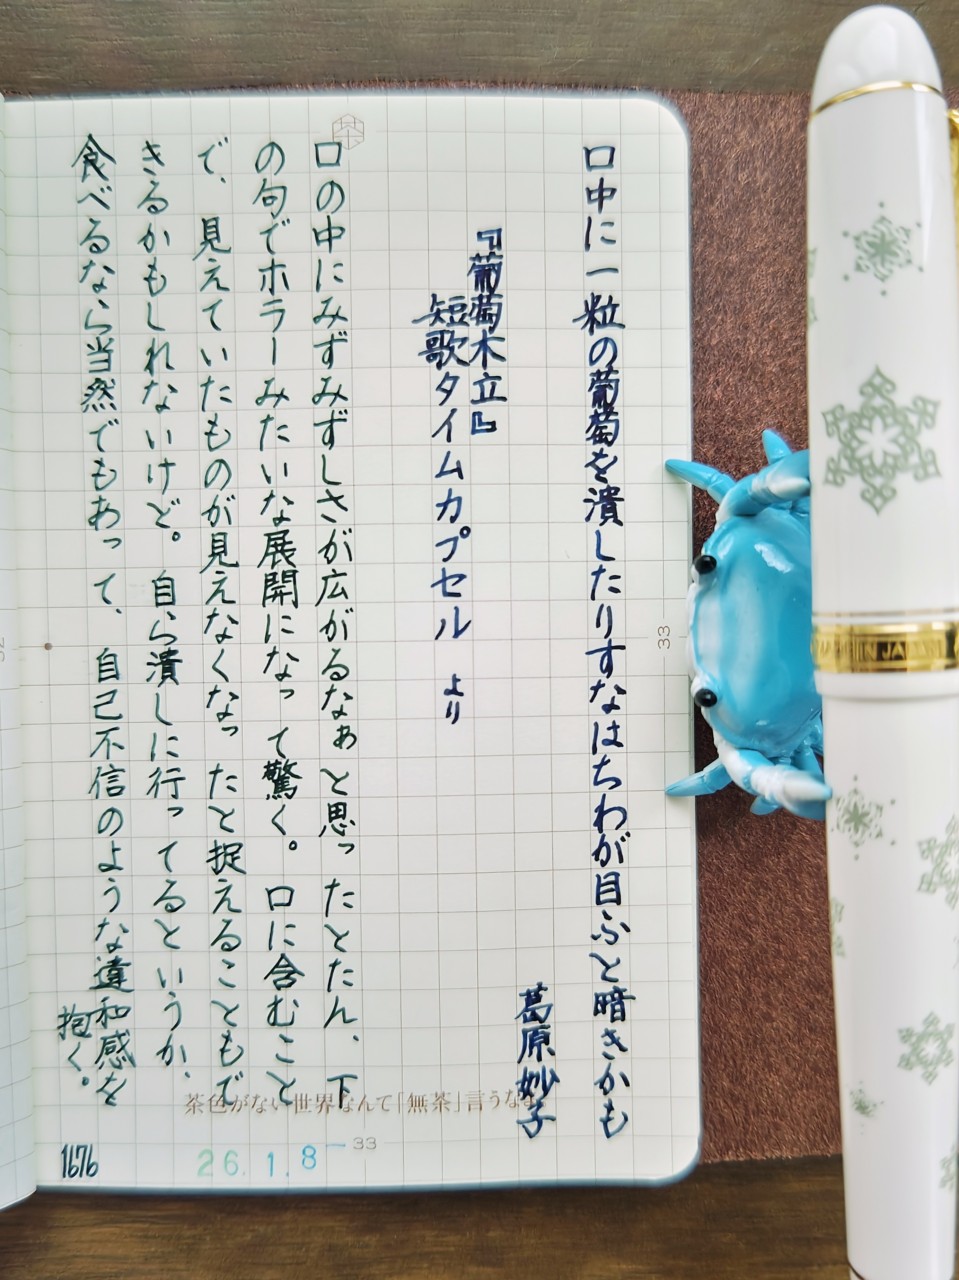 口中に一粒の葡萄を潰したりすなはちわが目ふと暗きかも
葛原妙子
『葡萄木立』
短歌タイムカプセル より
口の中にみずみずしさが広がるなぁと思ったとたん、下
の句でホラーみたいな展開になって驚く。口に含むこと
で、見えていたものが見えなくなったと捉えることもで
きるかもしれないけど。自ら潰しに行ってるというか、
食べるなら当然でもあって、自己不信のような違和感を
抱く。
茶色がない世界なんて「無茶」言うなよ
33
33
26.1.8
1676
IN JAPAN